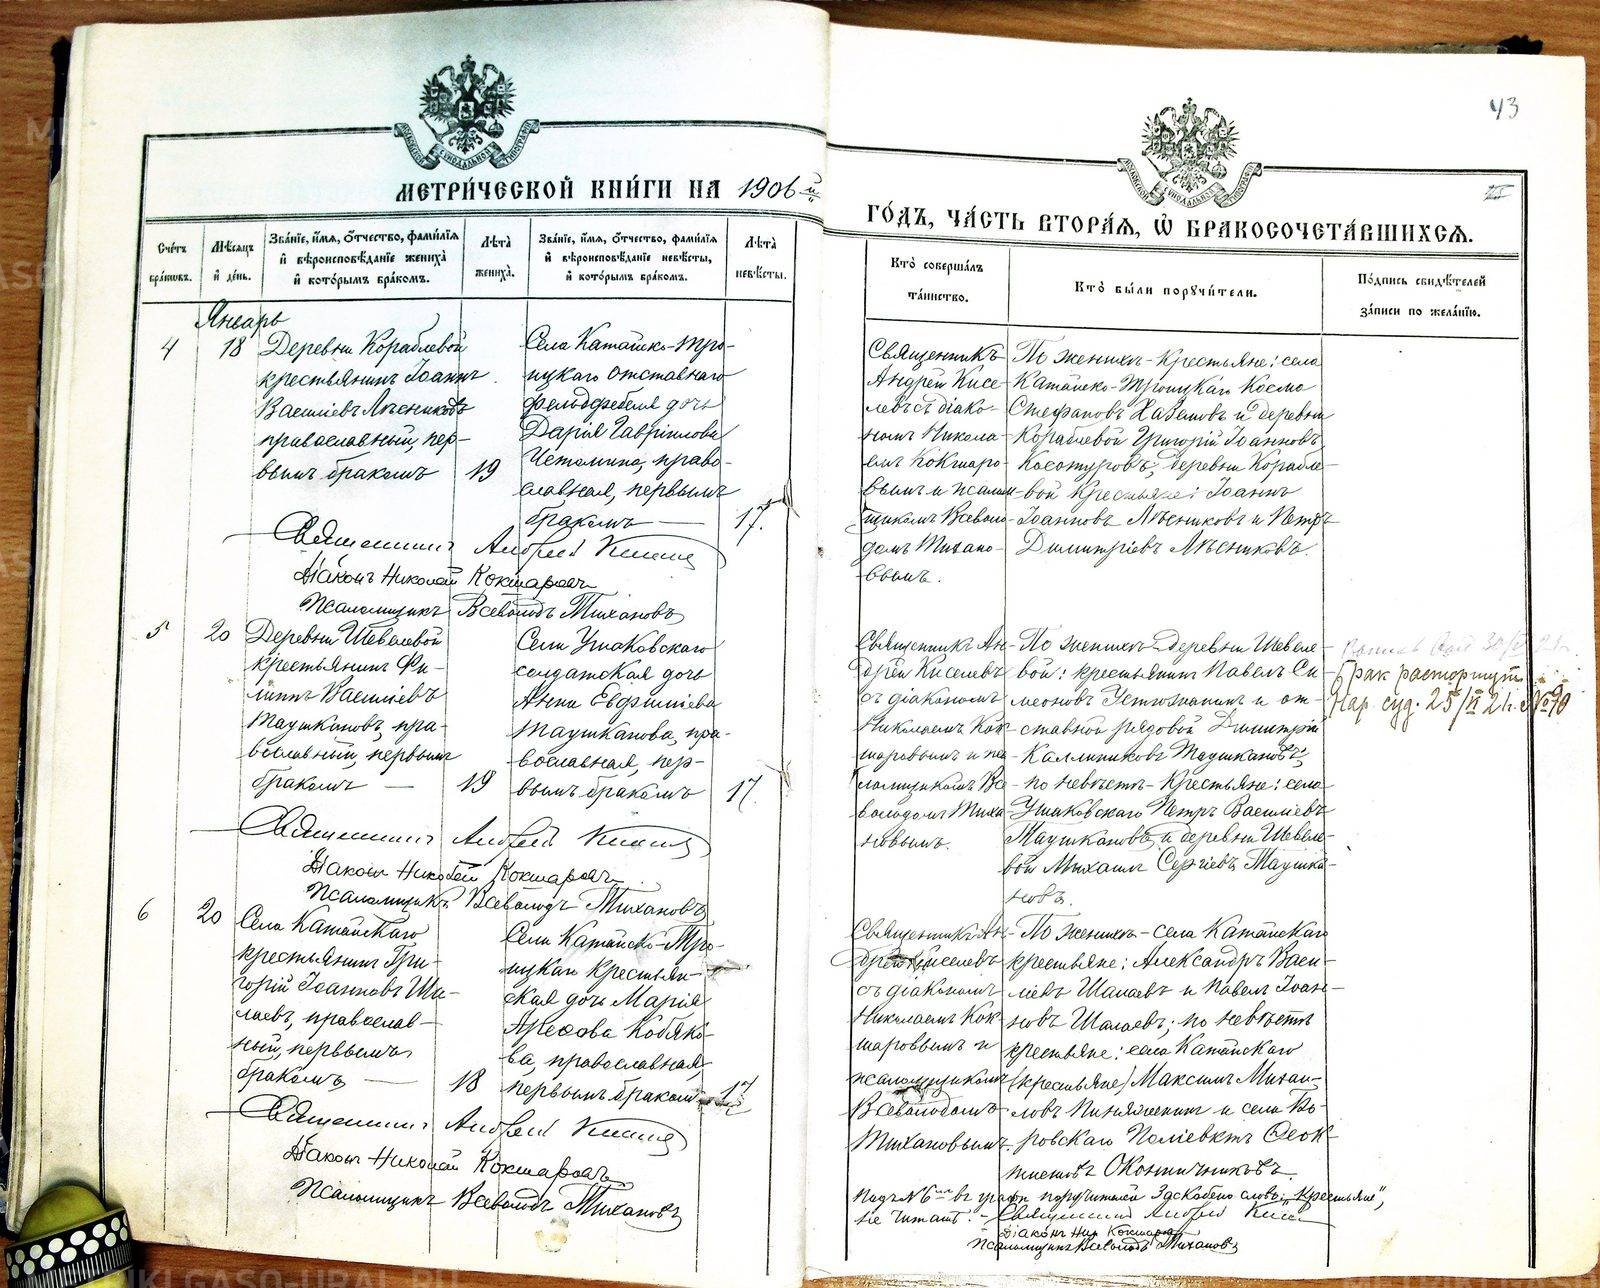 43
II
МЕТРИЧЕСКОЙ КНИГИ НА 1906 й
ГОДЪ, ЧАСТЬ ВТОРАЯ, Ѡ БРАКОСОЧЕТАВШИХСЯ.
Счетъ браковъ.
Мѣсяцъ и день.
Званіе, имя, отчество, фамилія и вѣроисповѣданіе жениха и которымъ бракомъ.
Лѣта жениха.
Званіе, имя, отчество, фамилія и вѣроисповѣданіе невѣсты, и которымъ бракомъ.
Лѣта невѣсты.
Кто совершалъ таинство.
Кто были поручители.
Подпись свидѣтелей записи по желанію.
Январь
4
18
Деревни Кораблевой
крестьянинъ Іоаннъ
Васильевъ Лѣсниковъ
православный, пер-
вымъ бракомъ
19
Села Катайско-Тро-
ицкаго отставнаго
фельдфебеля дочь
Дарія Гавріилова
Истомина, право-
славная, первымъ
бракомъ —
17.
Священникъ
Андрей Кисе
левъ съ діако-
номъ Никола-
емъ Кокшаро-
вымъ и псалом-
щикомъ Всеволо-
домъ Тихано-
вымъ.
По женихѣ - крестьяне: села
Катайско-Троицкаго Косма
Стефановъ и деревни
Кораблевой Григорій Іоанновъ
Косотуровъ, деревни Корабле-
вой крестьяне: Іоаннъ
Іоанновъ Лѣсниковъ и Петръ
Димитріевъ Лѣсниковъ.
Священникъ Андрей Киселевъ
Діаконъ Николай Кокшаровъ
Псаломщикъ Всеволодъ Тихановъ
5
20
Деревни Шевелевой
крестьянинъ Фи-
липпъ Васильевъ
Таушкановъ, пра-
вославный, первымъ
бракомъ —
19
Села Ушаковскаго
солдатская дочь
Анна Евфиміева
Таушканова, пра-
вославная, пер-
вымъ бракомъ
17.
Священникъ Ан-
дрей Киселевъ
съ діакономъ
Николаемъ Кок-
шаровымъ и пса-
ломщикомъ Все-
володомъ Тиха-
новымъ.
По женихѣ - деревни Шевеле-
вой: крестьянинъ Павелъ Си-
меоновъ Устюжанинъ и от-
ставной рядовой Димитрій
Каллиниковъ Таушкановъ;
по невѣстѣ - крестьяне: села
Ушаковскаго Петръ Васильевъ
Таушкановъ и деревни Шевеле-
вой Михаилъ Сергіевъ Таушка-
новъ.
Брак расторгнут
Нар. суд. 25/II 21г. №90
Священникъ Андрей Киселевъ
Діаконъ Николай Кокшаровъ
Псаломщикъ Всеволодъ Тихановъ
6
20
Села Катайскаго
крестьянинъ Гри-
горій Іоанновъ Ша-
лаевъ, православ-
ный, первымъ
бракомъ —
18
Села Катайско-Тро-
ицкаго крестьян-
ская дочь Марія
Кобяко-
ва, православная,
первымъ бракомъ
17
Священникъ Ан-
дрей Киселевъ
съ діакономъ
Николаемъ Кок-
шаровымъ и
псаломщикомъ
Всеволодомъ
Тихановымъ.
По женихѣ - села Катайскаго
крестьяне: Александръ Васи-
ліевъ Шалаевъ и Павелъ Іоан-
новъ Шалаевъ; по невѣстѣ
крестьяне: села Катайскаго
(крестьяне) Максимъ Михаи-
ловъ и села Бо-
ровскаго Поліевктъ Ѳеок-
тистовъ Оконничниковъ.
Священникъ Андрей Киселевъ
Діаконъ Николай Кокшаровъ
Псаломщикъ Всеволодъ Тихановъ
Подъ №6мъ въ графѣ поручителей заскобено слово: "крестьяне",
не читать. - Священникъ Андрей Кисел
Діаконъ Ник Кокшаровъ
Псаломщикъ Всеволодъ Тихановъ